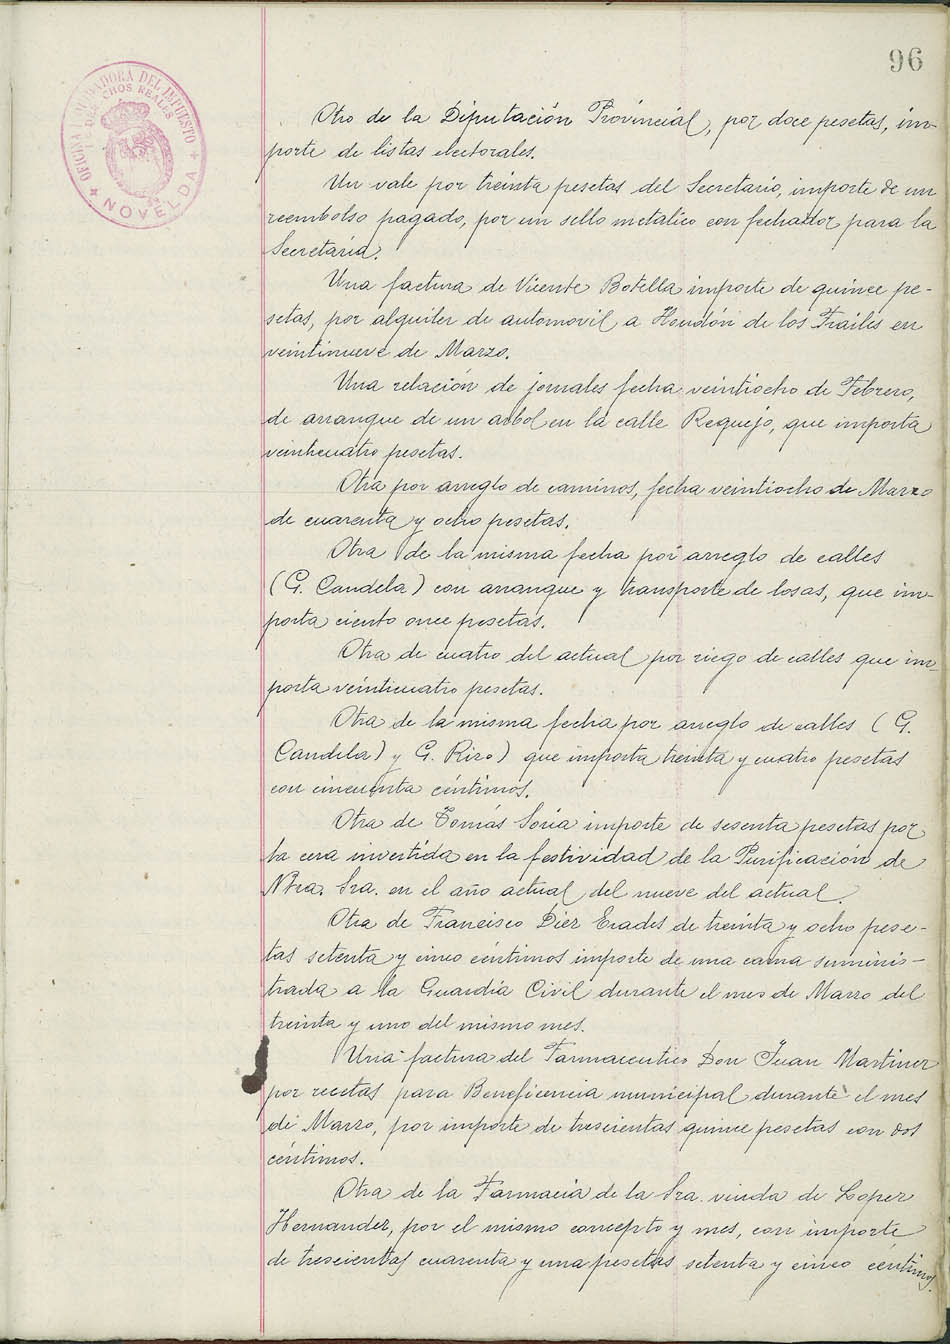 96
OFICINA LIQUIDADORA DEL IMPUESTO
DERECHOS REALES
NOVELDA
Otro de la Diputación Provincial, por doce pesetas, im-
porte de listas electorales.
Un vale por treinta pesetas del Secretario, importe de un
reembolso pagado, por un sello metalico con fechador para la
Secretaría.
Una factura de Vicente Botella importe de quince pe-
setas, por alquiler de automovil a Hondón de los Frailes en
veintinueve de Marzo.
Una relación de jornales fecha veintiocho de Febrero,
de arranque de un arbol en la calle Requejo, que importa
veinticuatro pesetas.
Otra por arreglo de caminos, fecha veintiocho de Marzo
de cuarenta y ocho pesetas.
Otra de la misma fecha por arreglo de calles
(G. Candela) con arranque y transporte de losas, que im-
porta ciento once pesetas.
Otra de cuatro del actual por riego de calles que im-
porta veinticuatro pesetas.
Otra de la misma fecha por arreglo de calles (G.
Candela) y G. Rizo) que importa treinta y cuatro pesetas
con cincuenta céntimos.
Otra de Tomás Soria importe de sesenta pesetas por
la cera invertida en la festividad de la Purificación de
Ntra. Sra. en el año actual del nueve del actual.
Otra de Francisco Diez Erades de treinta y ocho pese-
tas setenta y cinco céntimos importe de una cama suminis-
trada a la Guardia Civil durante el mes de Marzo del
treinta y uno del mismo mes.
Una factura del Farmaceutico Don Juan Martinez
por recetas para Beneficencia municipal durante el mes
de Marzo, por importe de trescientas quince pesetas con dos
céntimos.
Otra de la Farmacia de la Sra. viuda de Lopez
Hernandez, por el mismo concepto y mes, con importe
de trescientas cuarenta y una pesetas setenta y cinco céntimos.